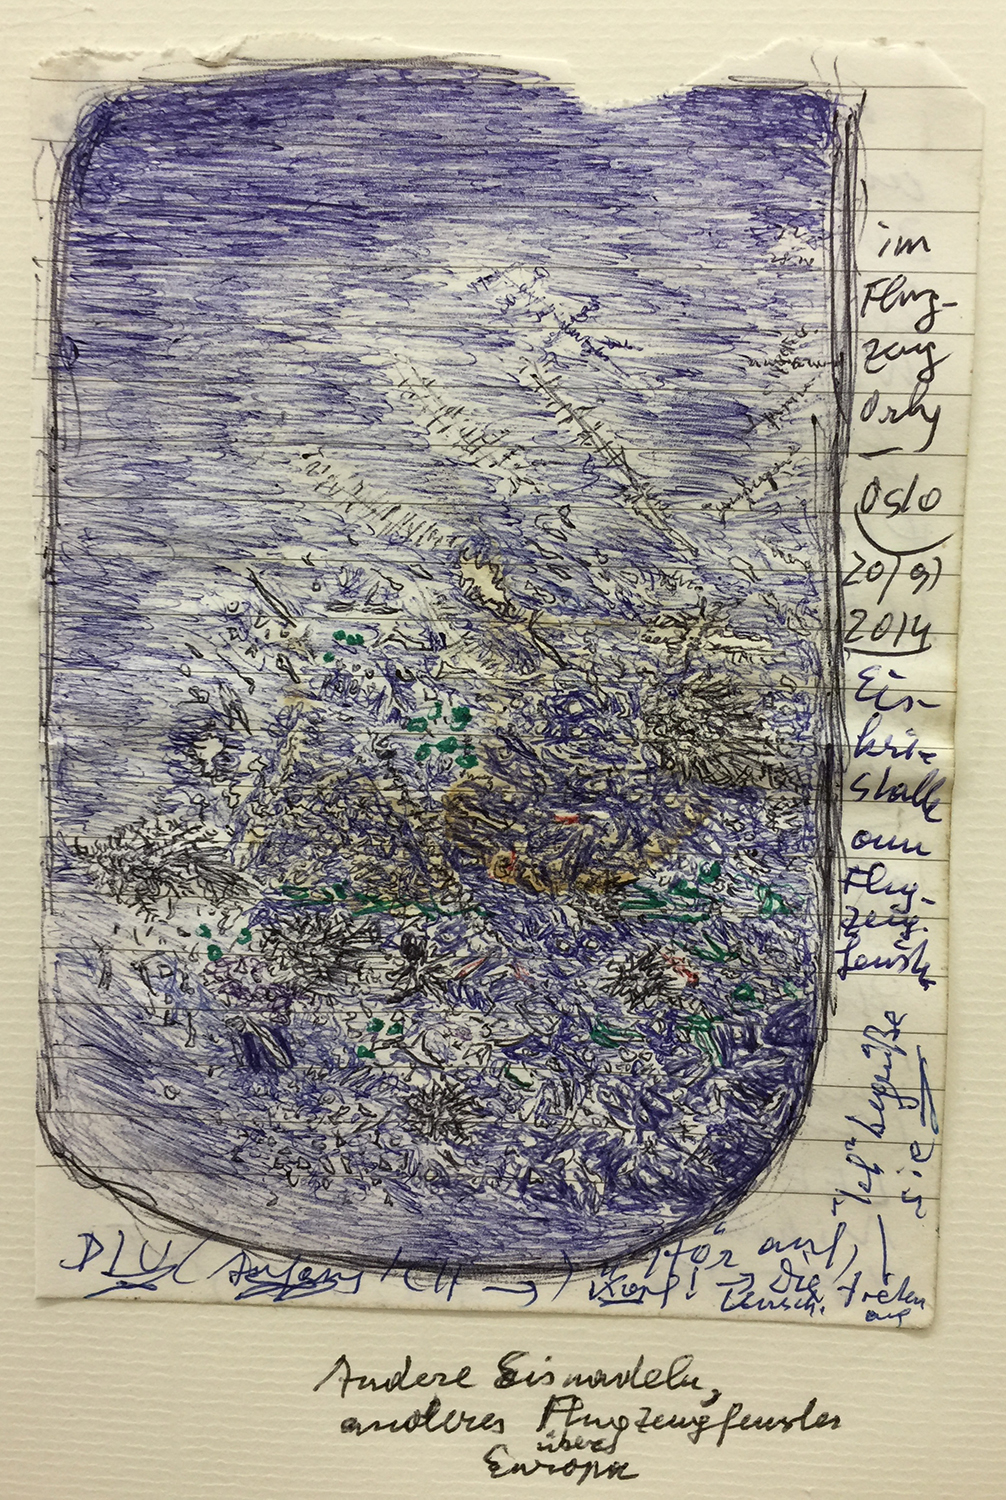 im
Flug-
zeug
Orly
—
Oslo
20/9/
2014
Eis-
kri-
stalle
am
Flug-
zeug-
fenster
"Ich begrüße
sie"
DLU (Anfang)
"Hör auf,
Kopf! → Die
Mensch. treten
auf
Andere Eisnadeln,
anderes Flugzeugfenster
übers
Europa